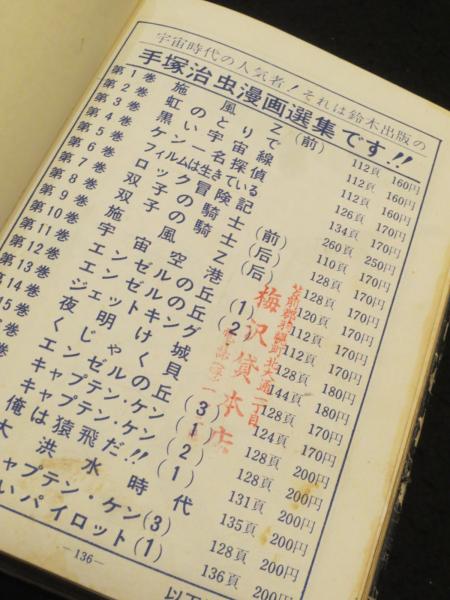 宇宙時代の人気者!それは鈴木出版の
手塚治虫漫画選集です!!
第1巻 施風Z (前) 112頁 160円
第2巻 虹のとりで 112頁 160円
第3巻 黒い宇宙線 112頁 160円
第4巻 ケン一名探偵 126頁 170円
第5巻 フィルムは生きている 134頁 170円
第6巻 ロック冒険記 260頁 250円
第7巻 双子の騎士 (前) 110頁 170円
第8巻 双子の騎士 (后) 128頁 170円
第9巻 施風Z (后) 128頁 170円
第10巻 宇宙空港 120頁 170円
第11巻 エンゼルの丘 (1) 112頁 170円
第12巻 エンゼルの丘 (2) 128頁 170円
第13巻 ジェットキング 144頁 180円
第14巻 夜明け城 128頁 180円
15巻 くじゃく貝 124頁 170円
巻 エンゼルの丘 (3) 128頁 200円
キャプテン・ケン (1) 128頁 200円
キャプテン・ケン (2) 131頁 200円
俺は猿飛だ!! (1) 135頁 200円
大洪水時代 128頁 200円
ャプテン・ケン (3) 136頁 200円
いパイロット (1)
梅沢貸本店
—136—